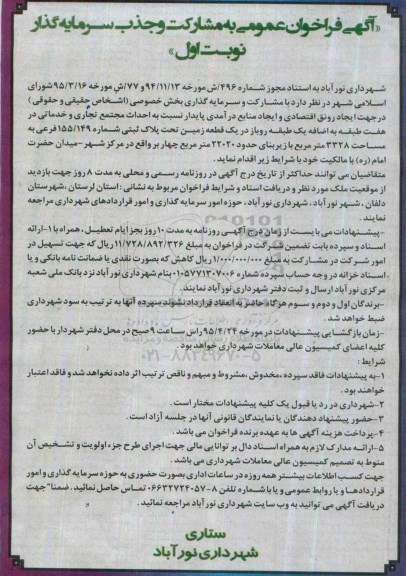 «آگهی فراخوان عمومی به مشارکت و جذب سرمایه گذار
نوبت اول»
شهرداری نورآباد به استناد مجوز شماره ۴۹۶/ش مورخه ۹۴/۱۱/۱۳ و ۷۷/ش مورخه ۹۵/۳/۱۶ شورای
اسلامی شهر در نظر دارد با مشارکت و سرمایه گذاری بخش خصوصی (اشخاص حقیقی و حقوقی)
در جهت ایجاد رونق اقتصادی و ایجاد منابع درآمدی پایدار نسبت به احداث مجتمع تجاری و خدماتی در
هفت طبقه به اضافه یک طبقه روباز در یک قطعه زمین تحت پلاک ثبتی شماره ۱۵۵/۱۴۹ فرعی به
مساحت ۳۳۲۸ متر مربع با زیربنای حدود ۲۲۰۲۰ متر مربع چهار بر واقع در مرکز شهر -میدان حضرت
امام (ره) با مالکیت خود با شرایط زیر اقدام نماید.
متقاضیان می توانند حداکثر از تاریخ درج آگهی در روزنامه رسمی و محلی به مدت ۸ روز جهت بازدید
از موقعیت ملک مورد نظر و دریافت اسناد و شرایط فراخوان مربوط به نشانی: استان لرستان، شهرستان
دلفان، شهر نورآباد، شهرداری نورآباد، حوزه امور سرمایه گذاری و امور قراردادهای شهرداری مراجعه
نمایند.
-پیشنهادات می بایست از زمان درج آگهی روزنامه به مدت ۱۰ روز بجز ایام تعطیل، همراه با ۱-ارائه
اسناد و سپرده بابت تضمین شرکت در فراخوان به مبلغ ۱۱/۷۲۸/۸۹۲/۳۲۶ ریال که جهت تسهیل در
امور شرکت در مشارکت به مبلغ ۱/۰۰۰/۰۰۰/۰۰۰ ریال کاهش که بصورت نقدی یا ضمانت نامه بانکی و یا
اسناد خزانه در وجه حساب سپرده شماره ۰۱۰۵۷۷۱۳۰۷۰۰۶ بنام شهرداری نورآباد نزد بانک ملی شعبه
مرکزی نورآباد ارسال و ثبت دفتر شهرداری نورآباد نمایند.
-برندگان اول و دوم و سوم هرگاه حاضر به انعقاد قرارداد نشوند سپرده آنها به ترتیب به سود شهرداری
ضبط خواهد شد.
-زمان بازگشایی پیشنهادات در مورخه ۹۵/۴/۲۴ راس ساعت ۹ صبح در محل دفتر شهردار با حضور
کلیه اعضای کمیسیون عالی معاملات شهرداری خواهد بود.
شرایط:
۱-به پیشنهادات فاقد سپرده، مخدوش، مشروط و مبهم و ناقص ترتیب اثر داده نخواهد شد و فاقد اعتبار
خواهند بود.
۲-شهرداری در رد یا قبول یک کلیه پیشنهادات مختار است.
۳-حضور پیشنهاد دهندگان یا نمایندگان قانونی آنها در جلسه آزاد است.
۴-پرداخت هزینه آگهی ها به عهده برنده فراخوان می باشد.
۵-ارائه مدارک لازم به همراه اسناد دال بر توانایی مالی جهت اجرای طرح جزء اولویت و تشخیص آن
منوط به تصمیم کمیسیون عالی معاملات شهرداری می باشد.
جهت کسب اطلاعات بیشتر همه روزه در ساعات اداری بصورت حضوری به حوزه سرمایه گذاری و امور
قراردادها و یا روابط عمومی و یا با شماره تلفن ۸-۰۶۶۳۲۷۲۴۰۵۷ تماس حاصل نمائید. ضمنا" جهت
دریافت آگهی می توانید به وب سایت شهرداری نورآباد مراجعه نمائید.
ستاری
شهرداری نورآباد